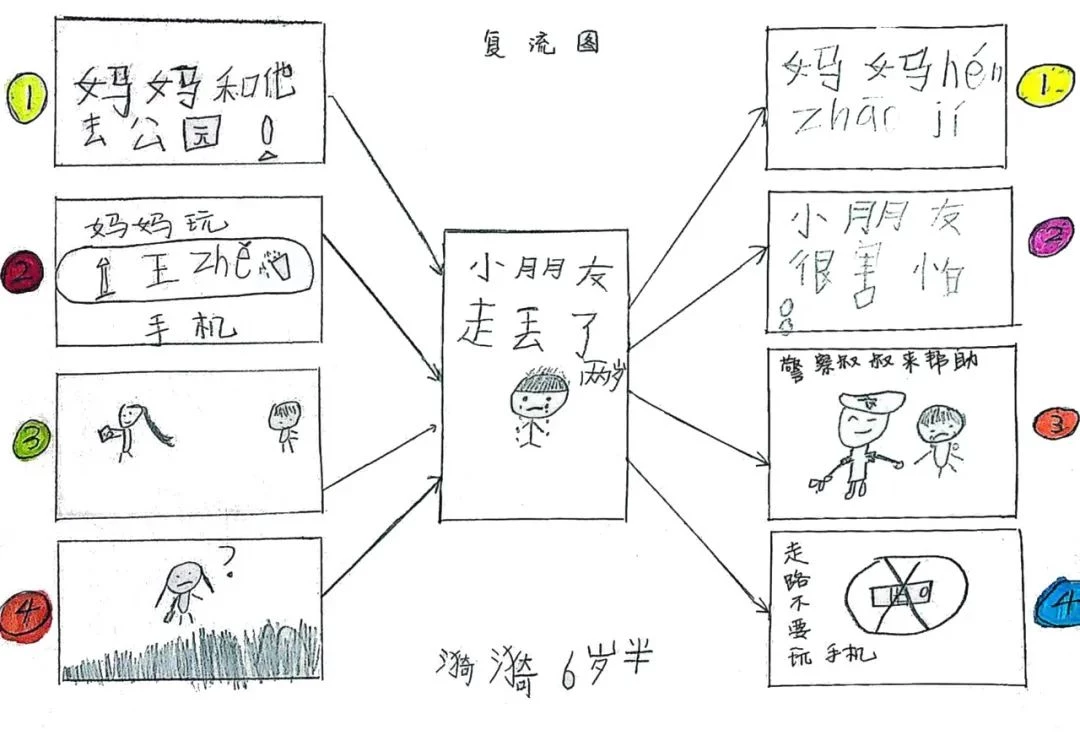 复流图
1
妈妈和他
去公园!
2
妈妈玩
王zhě
手机
3
4
?
小朋友
走丢了
两岁
1
妈妈hén
zhāo jí
2
小朋友
很害怕
3
警察叔叔来帮助
4
走路不要
玩手机
漪漪6岁半